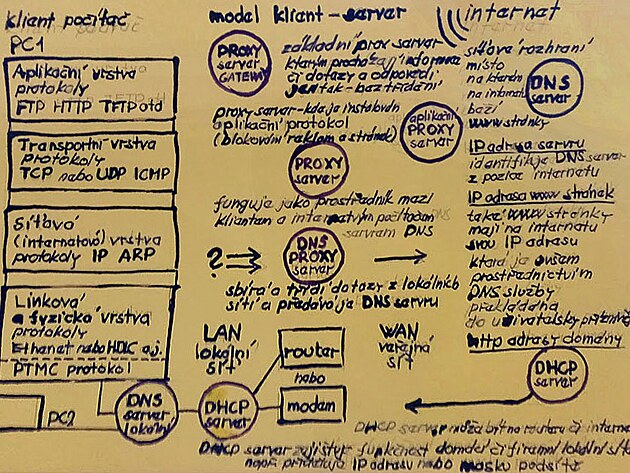 klient počítač
PC1
Aplikační vrstva
protokoly
FTP HTTP TFTP atd
Transportní vrstva
protokoly
TCP nebo UDP ICMP
Síťová
(internetová) vrstva
protokoly IP ARP
Linková
a fyzická vrstva
protokoly
Ethanet nebo HDLC aj.
PTMC protokol
PC2
DNS
server
lokální
model klient - server
PROXY
server
GATEWAY
základní prox server
kterým procházají informace
či dotazy a odpovědi
jen tak - bez třídění
proxy server - kde je instalován
aplikační protokol
(blokování reklam a stránek)
aplikační
PROXY
server
PROXY
server
funguje jako prostředník mezi
klientem a internetovým počítačem
servrem DNS
?
DNS
PROXY
server
sbírá a třídí dotazy z lokálních
sítí a předává je DNS servru
LAN
lokální
síť
router
nebo
modem
WAN
veřejná
síť
DHCP
server
internet
síťové rozhraní
místo
na kterém
na internatu
běží
www stránky
DNS
server
IP adresa servru
identifikuje DNS server
z pozice internetu
IP adresa www stránek
také www stránky
mají na internatu
svou IP adrasu
která je ovšem
prostřednictvím
DNS služby
překládána
do uživatelsky
http adrasy domény
DHCP
server
DHCP server může být na routeru či
DHCP server zajišťuje funkčnost domácí či firemní lokální
např. přiděluje IP adrasu nebo masku podsítě